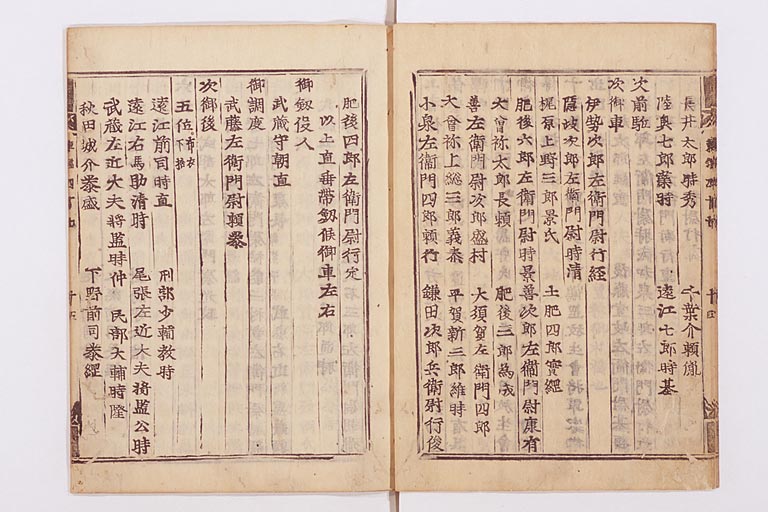 長井太郎時秀　千葉介頼胤
陸奥七郎業時　遠江七郎時基
次前駈
次御車
伊勢次郎左衛門尉行経
薩摩次郎左衛門尉時清
梶原上野三郎景氏　土肥四郎實經
肥後六郎左衛門尉時景　善次郎左衛門尉康有
大曾祢太郎長頼　肥後三郎為成
善左衛門尉次郎盛村　大須賀左衛門四郎
大曾祢上総三郎義泰　平賀新三郎維時
小泉左衛門四郎頼行　鎌田次郎兵衛尉行俊
肥後四郎左衛門尉行定
以上直垂帯釼候御車左右
御釼役人
武蔵守朝直
御調度
武藤左衛門尉頼泰
次御後
五位布衣下括
遠江前司時直　刑部少輔教時
遠江右馬助清時　尾張左近大夫将監公時
武蔵左近大夫将監時仲　民部大輔時隆
秋田城介泰盛　下野前司泰經